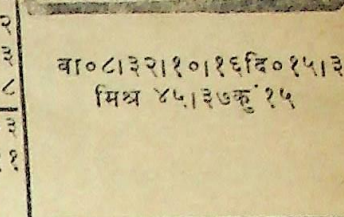 २
३
८
३
११
वा०८।३२।१०।१६दि०१५।३
मिश्र ४५।३७कुं १५